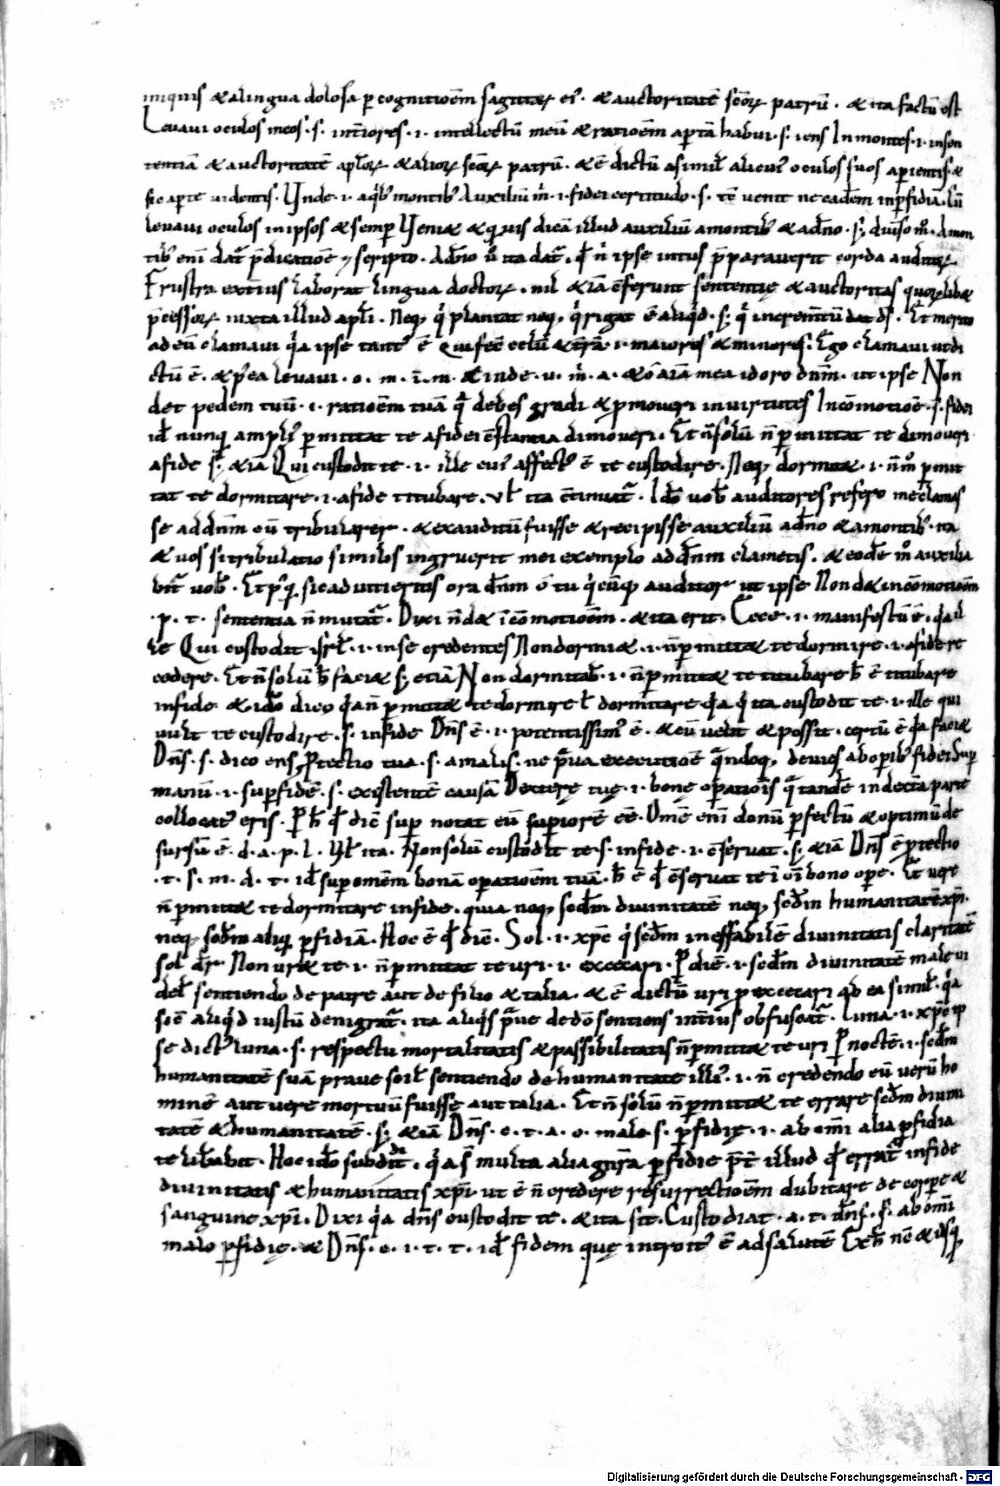 iniquis & a lingua dolosa p cognitioēm sagittaꝝ ei᾿. & auctoritatē scōꝝ patrū. & ita factū est
Levavi oculos meos. s. int̄iores. i. intellectū meū & ratioēm aptā habui. s. iens In montes. i. in sen
tentiā & auctoritatē aplōꝝ & alioꝝ scōꝝ patrū. & ē dictū a simil alicui᾿ oculos suos apientis &
sic apte videntis. Unde. i. a qb᾿ montib᾿ Auxiliū m̄. i. fidei certitudo. s. tē venit ne cadēm in pfidiā.
levavi oculos in ipsos & semp Veniæ & qvis dicā illud auxiliū a montib᾿ & a dn̄o.
tib᾿ eni dat᾿ p̄dicatiōe & scripto. A dn̄o v᾿ ita dat᾿, qd n̄ ipse intus p̄paraverit corda auditoꝝ.
Frustra ext̄ius laborat lingua doctoꝝ. nil & iā cferunt sententię & auctoritas quoꝝlib&
p̄cessoꝝ iuxta illud apli. Neq, q plantat neq, q rigat ē aliqd. s; q incremtū dat ds̄. Et merito
ad eū clamavi qa ipse tant᾿ ē Qui fecit celū & t̄rā. i. maiores & minores. Ego clamavi ut di
ctū ē. & p̄ea levavi. o. m. i. m. & inde. v. m. a. & o aiā mea id oro dnm. ut ipse Non
det pedem tuū. i. ratioēm tuā q debes gradi & pmoveri in virtutes In cōmotiōē. s. fidei
id nunq ampli᾿ pmittat te a fidei cstantia dimoveri. Et n̄ solū n̄ pmittat te dimoveri
a fide s; & iā Qui custodit te. i. ille cui᾿ affect᾿ ē te custodire. Neq, dormit&. i. n̄ m᾿ pmit
tat te dormitare. i. a fide titubare. vl ita ctinuat᾿. Ido vob᾿ auditores refero me clamas
se ad dnm cū tribularer. & exauditū fuisse & recipisse auxiliū a dn̄o & a montib᾿. ita
& vos si tribulatio similis ingruerit mei exemplo ad dnm clametis. & eode m᾿ auxilia
bit᾿ vob᾿. ora dnm o tu qcūq auditor ut ipse Non d& in cōmotioēm
. p. t. sententia n̄ mutat᾿. Dixi n̄ d& i cōmotioēm. & ita erit. Ecce. i. manifestū ē. qa il
le Qui custodit isrl. i. in se credentes Non dormi&. i. n̄ pmitt& te dormire. i. a fide re
cedere. Et n̄ solū h̄ faci& s; etiā Non dormitab᾿. i. n̄ pmitt& te titubare h̄ ē titubare
in fide. & ido dico qa n̄ pmitt& te dormire l dormitare qa q ita custodit te. i. ille qui
vult te custodire. s. in fide Dn̄s ē. i. potentissim᾿ ē. & cū velit & possit. certū ē qa faci&
Dn̄s. s. dico ens Ptectio tua. s. a malis. ne p̄va execatiōe qndoq, devies ab opib᾿ fidei Sup
manū. i. sup fidē. s. existentē causā Dexterę tuę. i. bonę opatiōis q tandē in dextā parte
collocat᾿ eris. P h̄ qd dic̄ sup notat eū supiorē cē. Omē eni donū pfectū & optimū de
sursū ē. d. a. p. l. Vl ita. Non solū custodit te. s. in fide. i. cservat. s; & iā Dn̄s ē ptectio
. t. s. m. d. t. id sup omēm bonā opatioēm tuā. h̄ ē qd cservat te i oi bono ope. Et vere
n̄ pmitt& te dormitare in fide. quia neq, scdm divinitatē neq, scdm humanitatē xpi.
neq, scdm aliq pfidiā. Hoc ē qd dic̄. Sol. i. xpc q scdm ineffabilē divinitatis claritatē
sol dr. Non ur& te. i. n̄ pmittat te uri. i. excecari. P diē. i. scdm divinitatē male vi
del sentiendo de patre aut de filio & talia. & ē dictū uri p excecari qb ea simil. qa
sic aliqd iustū denigrat᾿. ita aliqs prave de dō sentiens int̄ius obfuscat᾿. Luna. i. xpc ip
se dict᾿ luna. s. respectu mortalitatis & passibilitatis n̄ pmitt& te uri P noctē. i. scdm
humanitatē suā prave scil sentiendo de humanitate illi᾿. i. n̄ credendo eū verū ho
minē aut vere mortuū fuisse aut talia. Et n̄ solū n̄ pmitt& te errare scdm divini
tatē & humanitatē. s; & iā Dn̄s. c. t. a. o. malo s. pfidię. i. ab omi alia pfidia
te libabit. Hoc ido subdit. qa s multa alia gn̄ra pfidie p̄t illud qd errat᾿ in fide
divinitatis & humanitatis xpi. ut ē n̄ credere resurrectioēm dubitare de corpe &
sanguine xpi. Dixi qa dn̄s custodit te. & ita sit. Custodiat. a. t. dns. s. ab omi
malo pfidię. & Dn̄s. c. i. t. t. id fidem quę introit᾿ ē ad salutē
Digitalisierung gefördert durch die Deutsche Forschungsgemeinschaft - DFG